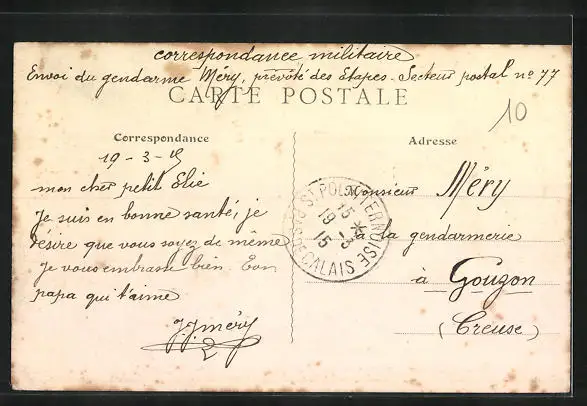 correspondance militaire
Envoi du gendarme Méry, prévôté des Etapes. Secteur postal n° 77
CARTE POSTALE
10
Correspondance
19-3-15
mon cher petit Elie
Je suis en bonne santé, je
désire que vous soyez de même
Je vous embrasse bien. Ton
papa qui t'aime
J. J. méry
Adresse
Monsieur Méry
à la gendarmerie
à Gouzon
(Creuse)
ST POL-S-TERNOISE
15 *
19 -3
15
PAS-DE-CALAIS